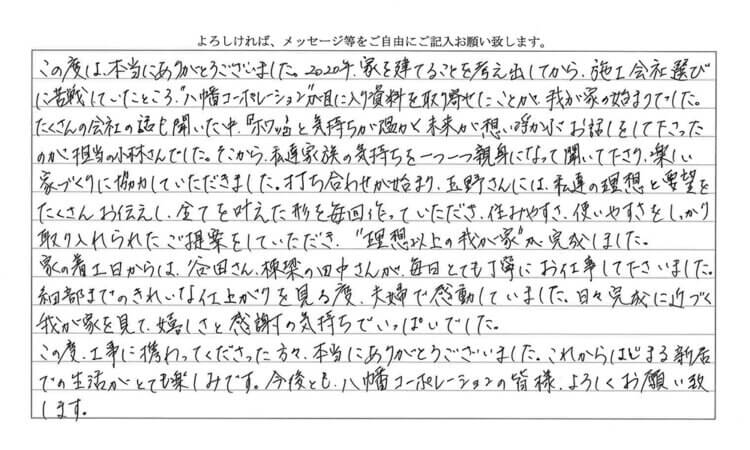 よろしければ、メッセージ等をご自由にご記入お願い致します。
この度は、本当にありがとうございました。2020年、家を建てることを考え出してから、施工会社選び
に苦戦していたところ、"八幡コーポレーション"が目に入り資料を取り寄せたことが、我が家の始まりでした。
たくさんの会社の話も聞いた中、『ホワッ』と気持ちが温かく未来が想い浮かぶお話しをして下さった
のが担当の小林さんでした。そこから、私達家族の気持ちを一つ一つ親身になって聞いて下さり、楽しい
家づくりに協力していただきました。打ち合わせが始まり、玉野さんには、私達の理想と要望を
たくさんお伝えし、全てを叶えた形を毎回作っていただき、住みやすさ、使いやすさをしっかり
取り入れられたご提案をしていただき、"理想以上の我が家"が完成しました。
家の着工日からは、谷田さん、棟梁の田中さんが、毎日とても丁寧にお仕事して下さいました。
細部までのきれいな仕上がりを見る度、夫婦で感動していました。日々完成に近づく
我が家を見て、嬉しさと感謝の気持ちでいっぱいでした。
この度、工事に携わってくださった方々、本当にありがとうございました。これからはじまる新居
での生活がとても楽しみです。今後とも、八幡コーポレーションの皆様、よろしくお願い致
します。